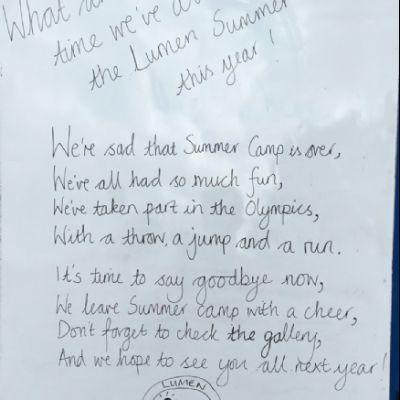 What
time we've
the Lumen Summer
this year!
We're sad that Summer Camp is over,
We've all had so much fun,
We've taken part in the Olympics,
With a throw, a jump and a run.
It's time to say goodbye now,
We leave Summer camp with a cheer,
Don't forget to check the gallery,
And we hope to see you all next year!
LUMEN